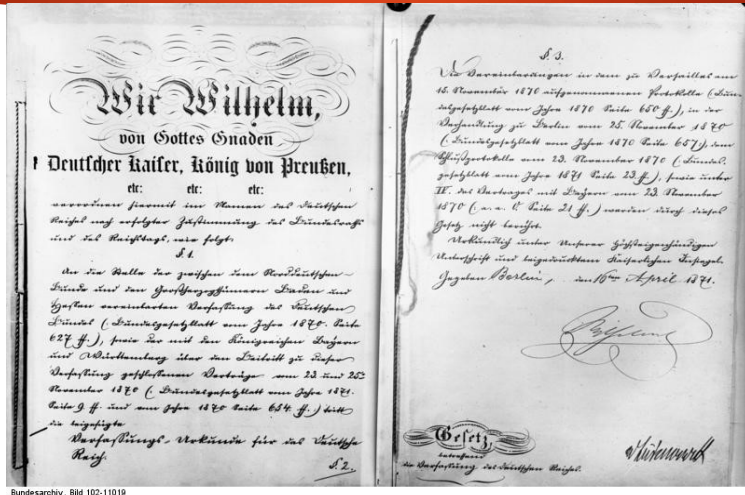 Wir Wilhelm,
von Gottes Gnaden
Deutscher Kaiser, König von Preußen,
etc: etc: etc:
verordnen hiermit im Namen des Deutschen
Reiches nach erfolgter Zustimmung des Bundesraths
und des Reichstags, wie folgt:
§. 1.
An die Stelle der zwischen dem Norddeutschen
Bunde und den Großherzogthümern Baden und
Hessen vereinbarten Verfassung des Deutschen
Bundes (Bundesgesetzblatt vom Jahre 1870. Seite
627 ff.), sowie der mit den Königreichen Bayern
und Württemberg über den Beitritt zu dieser
Verfassung geschlossenen Verträge vom 23 und 25
November 1870 (Bundesgesetzblatt vom Jahre 1871.
Seite 9 ff. und vom Jahre 1870 Seite 654 ff.) tritt
die beigefügte
Verfassungs-Urkunde für das Deutsche
Reich.
§. 2.
§. 3.
Die Vereinbarungen in dem zu Versailles am
15. November 1870 aufgenommenen Protokolle (Bun-
desgesetzblatt vom Jahre 1870 Seite 650 ff.), in der
Verhandlung zu Berlin vom 25. November 1870
(Bundesgesetzblatt vom Jahre 1870 Seite 657), dem
Schlußprotokolle vom 23. November 1870 (Bundes-
gesetzblatt vom Jahre 1871 Seite 23 ff.), sowie unter
IV. des Vertrages mit Bayern vom 23. November
1870 (a. a. O. Seite 21 ff.) werden durch dieses
Gesetz nicht berührt.
Urkundlich unter Unserer Höchsteigenhändigen
Unterschrift und beigedrucktem Kaiserlichen Insiegel.
Gegeben Berlin, den 16ten April 1871.
Wilhelm
Gesetz,
betreffend
die Verfassung des Deutschen Reiches.
Bundesarchiv, Bild 102-11019